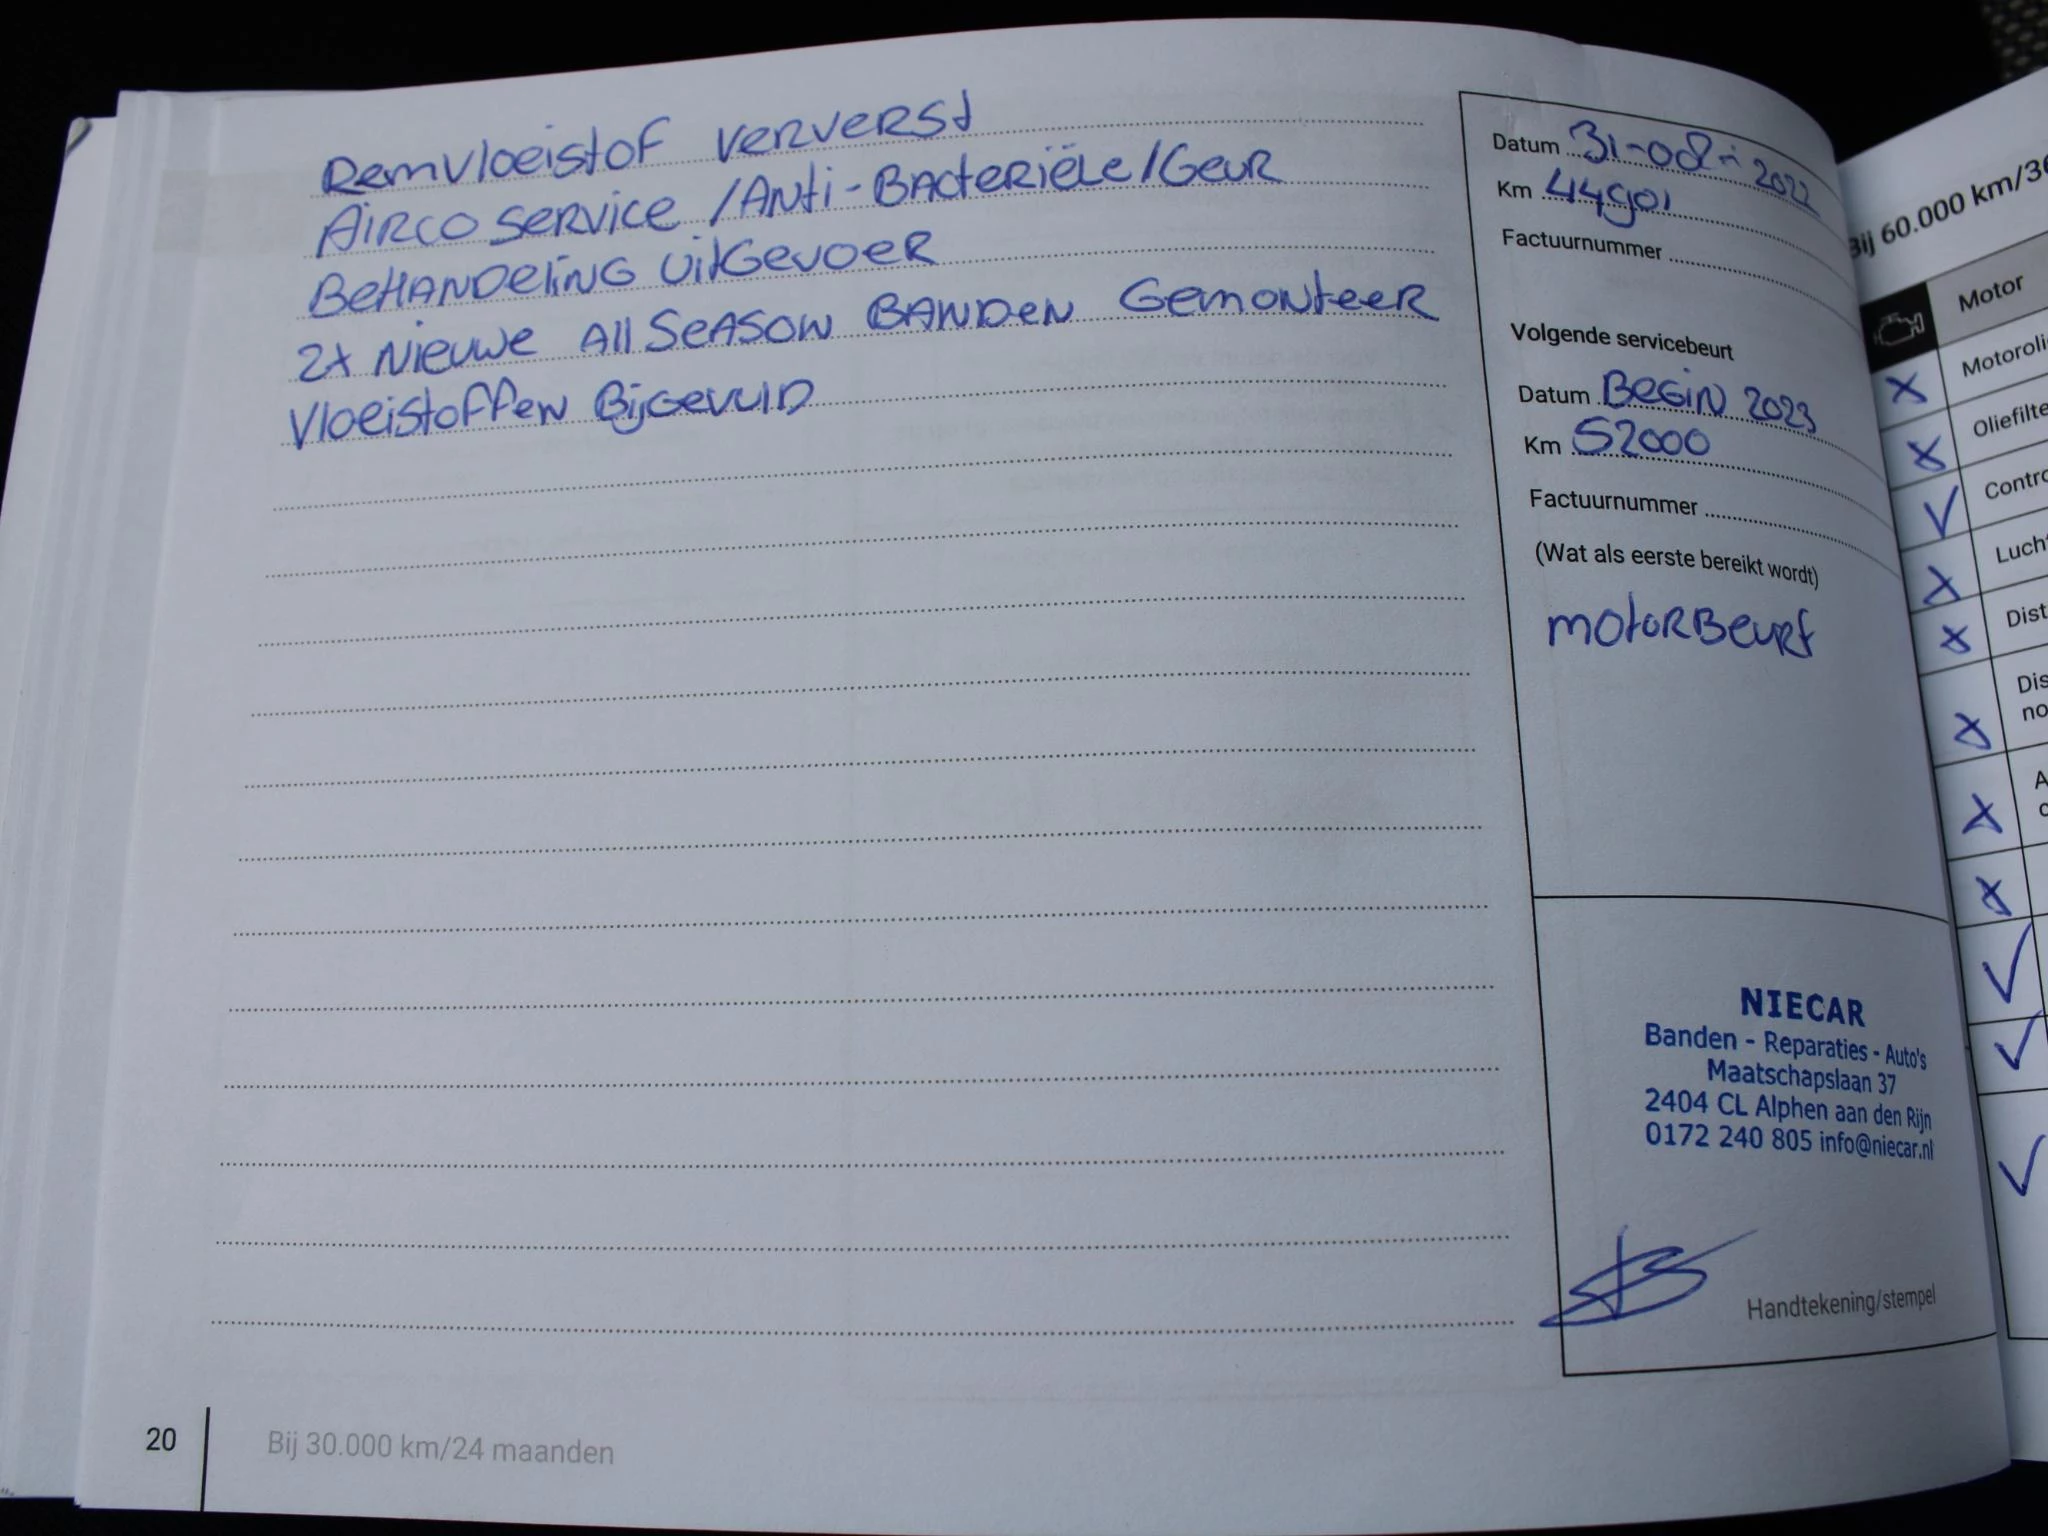 Remvloeistof ververst
Airco service /Anti-Bacteriële/Geur
Behandeling uitgevoer
2x Nieuwe All Season Banden Gemonteer
Vloeistoffen Bijgevuld
Datum 31-08-2022
Km 44901
Factuurnummer
Volgende servicebeurt
Datum Begin 2023
Km 52000
Factuurnummer
(Wat als eerste bereikt wordt)
motorBeurt
NIECAR
Banden - Reparaties - Auto's
Maatschapslaan 37
2404 CL Alphen aan den Rijn
0172 240 805 info@niecar.nl
Handtekening/stempel
20
Bij 30.000 km/24 maanden
Bij 60.000 km/3
Motor
Motoroli
Oliefilte
Contro
Lucht
Dist
Dis
no
A